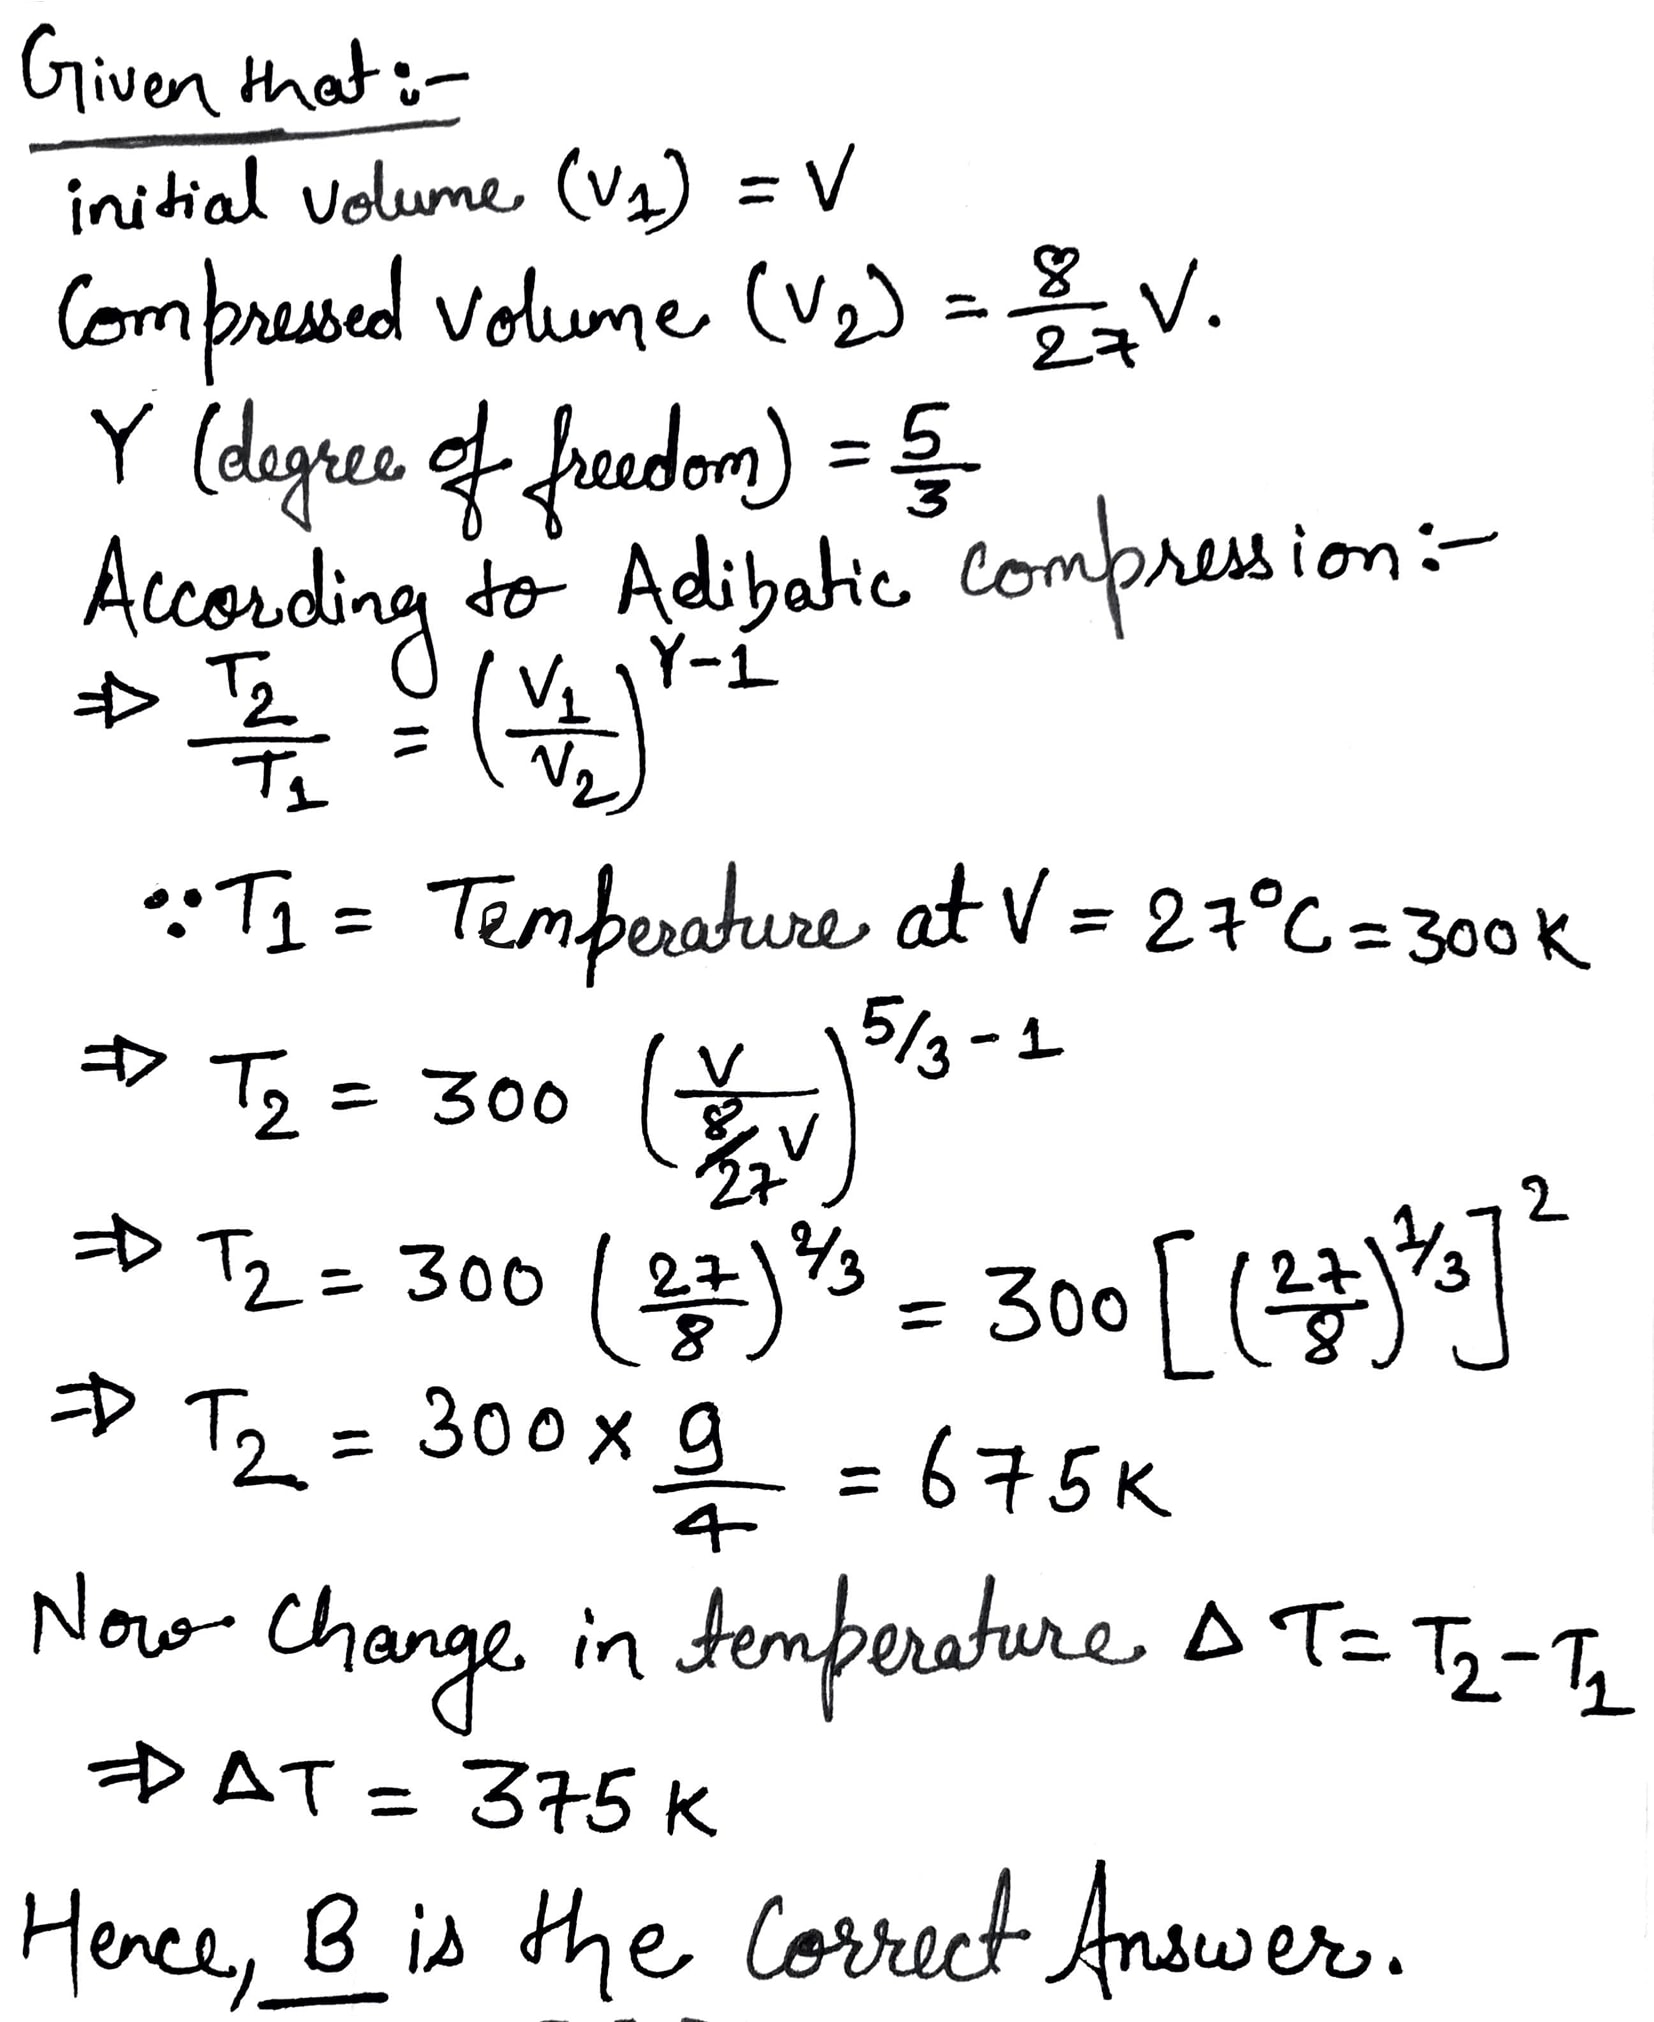 Given that:-
initial volume (V1) = V
Compressed volume (V2) = 8/27 V.
γ (degree of freedom) = 5/3
According to Adibatic compression:-
⇒ T2/T1 = (V1/V2)^γ-1
∵ T1 = Temperature at V = 27°C = 300K
⇒ T2 = 300 (V/(8/27 V))^5/3-1
⇒ T2 = 300 (27/8)^2/3 = 300 [(27/8)^1/3]^2
⇒ T2 = 300 × 9/4 = 675K
Now Change in temperature ΔT = T2-T1
⇒ ΔT = 375K
Hence, B is the Correct Answer.